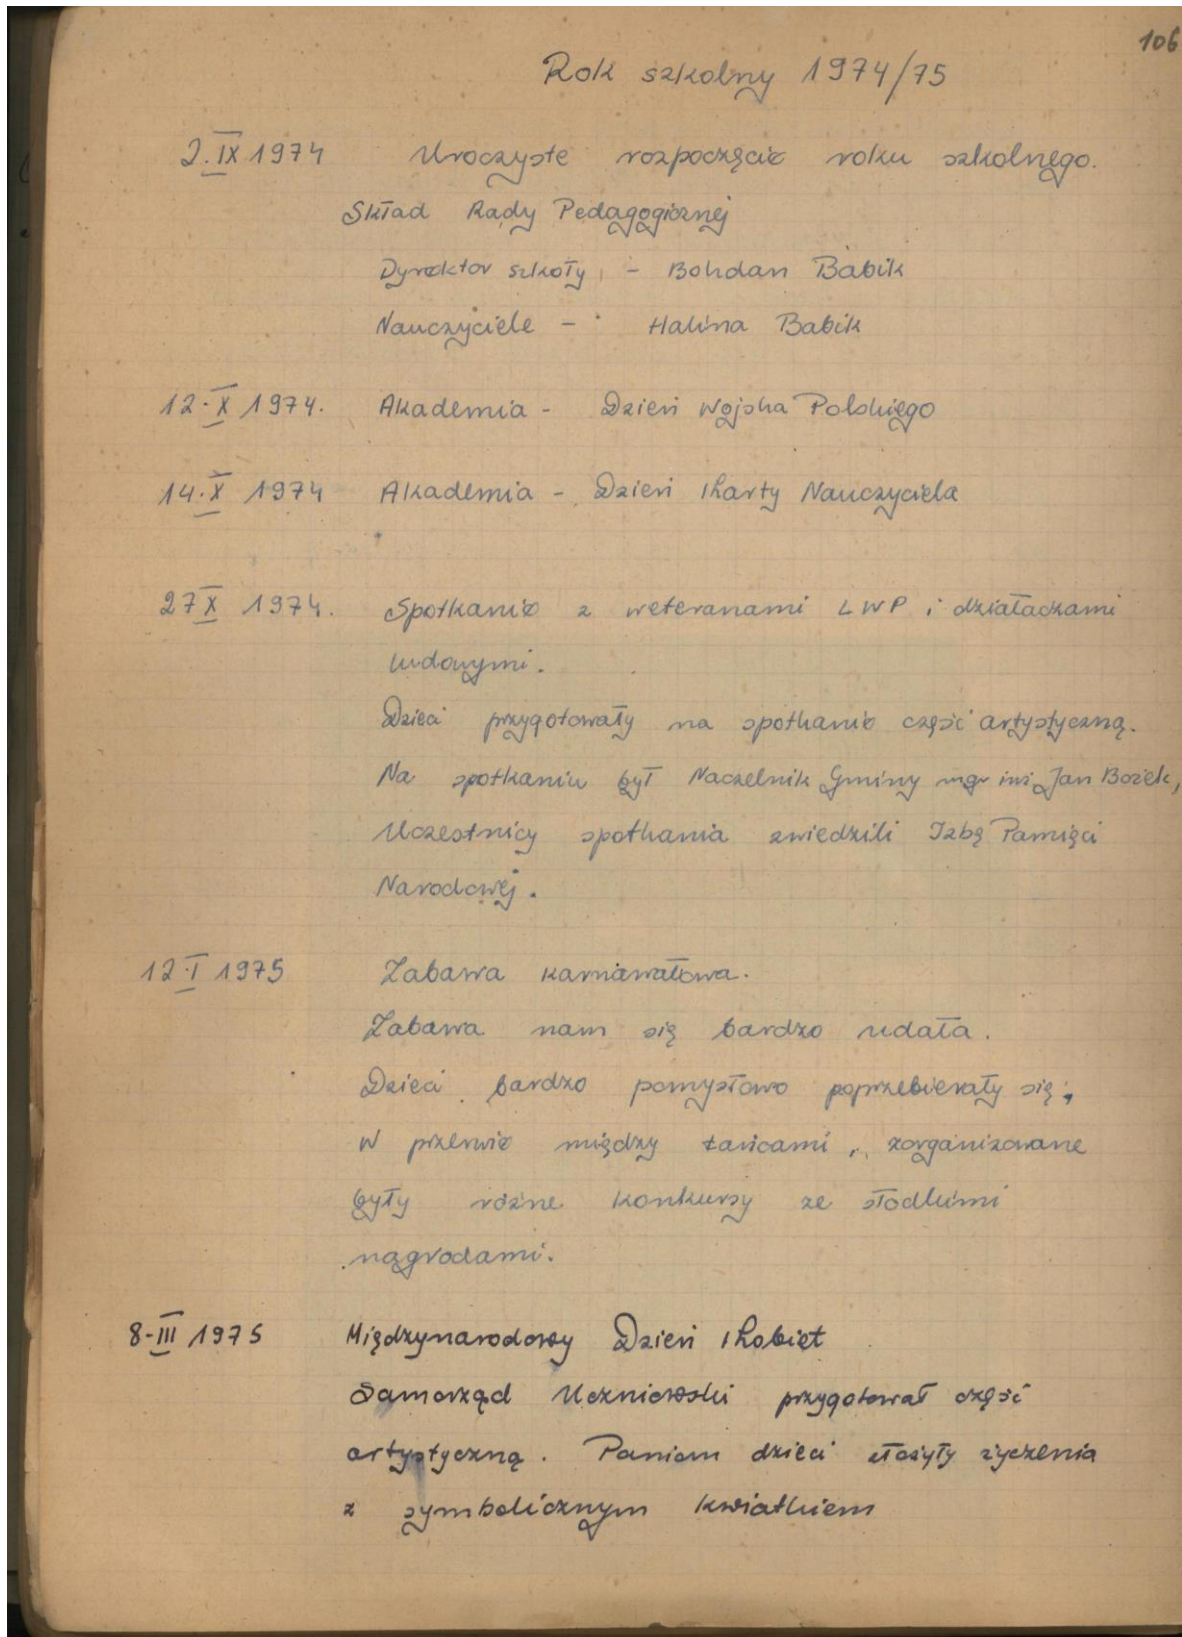 106
Rok szkolny 1974/75
2.IX 1974 Uroczyste rozpoczęcie roku szkolnego.
Skład Rady Pedagogicznej
Dyrektor szkoły - Bohdan Babik
Nauczyciele - Halina Babik
12.X 1974. Akademia - Dzień Wojska Polskiego
14.X 1974 Akademia - Dzień Karty Nauczyciela
27 X 1974. Spotkanie z weteranami LWP i działaczami
ludowymi.
Dzieci przygotowały na spotkanie część artystyczną.
Na spotkaniu był Naczelnik Gminy mgr inż Jan Bożek,
Uczestnicy spotkania zwiedzili Izbę Pamięci
Narodowej.
12.I 1975 Zabawa karnawałowa.
Zabawa nam się bardzo udała.
Dzieci bardzo pomysłowo poprzebierały się,
w przerwie między tańcami, zorganizowane
były różne konkursy ze słodkimi
nagrodami.
8-III 1975 Międzynarodowy Dzień Kobiet
Samorząd Uczniowski przygotował część
artystyczną. Paniom dzieci złożyły życzenia
z symbolicznym kwiatkiem